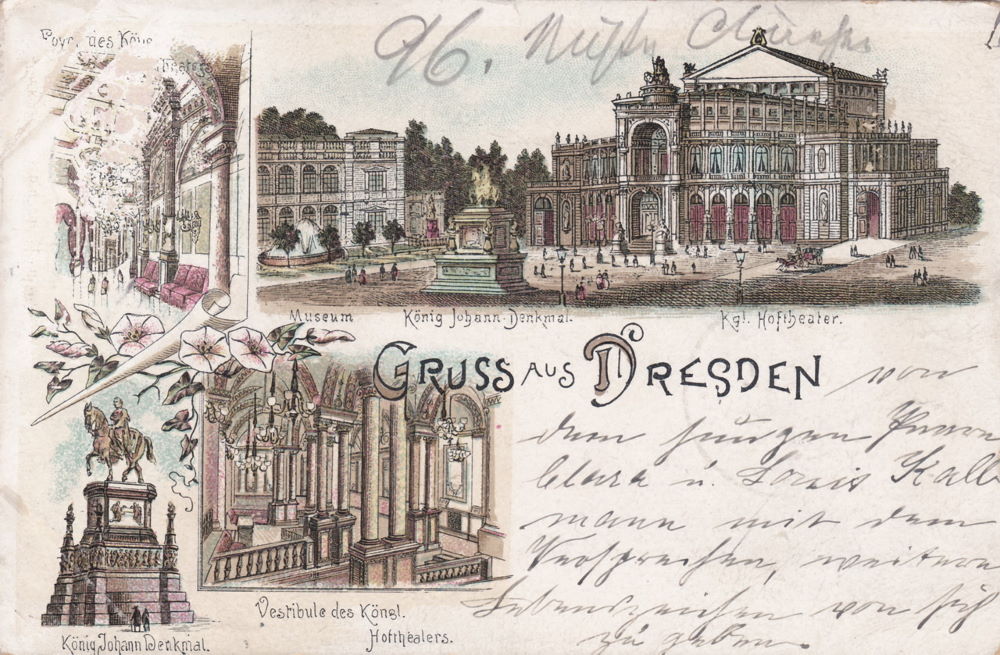 96.
Foyr. des Kön
Theaters
Museum
König Johann-Denkmal.
Kgl. Hoftheater.
GRUSS AUS DRESDEN
von
dem jungen Paare
Clara u. Louis Kall
mann mit dem
Versprechen, weitere
Lebenszeichen von sich
zu geben.
Vestibule des Köngl.
Hoftheaters.
König Johann Denkmal.